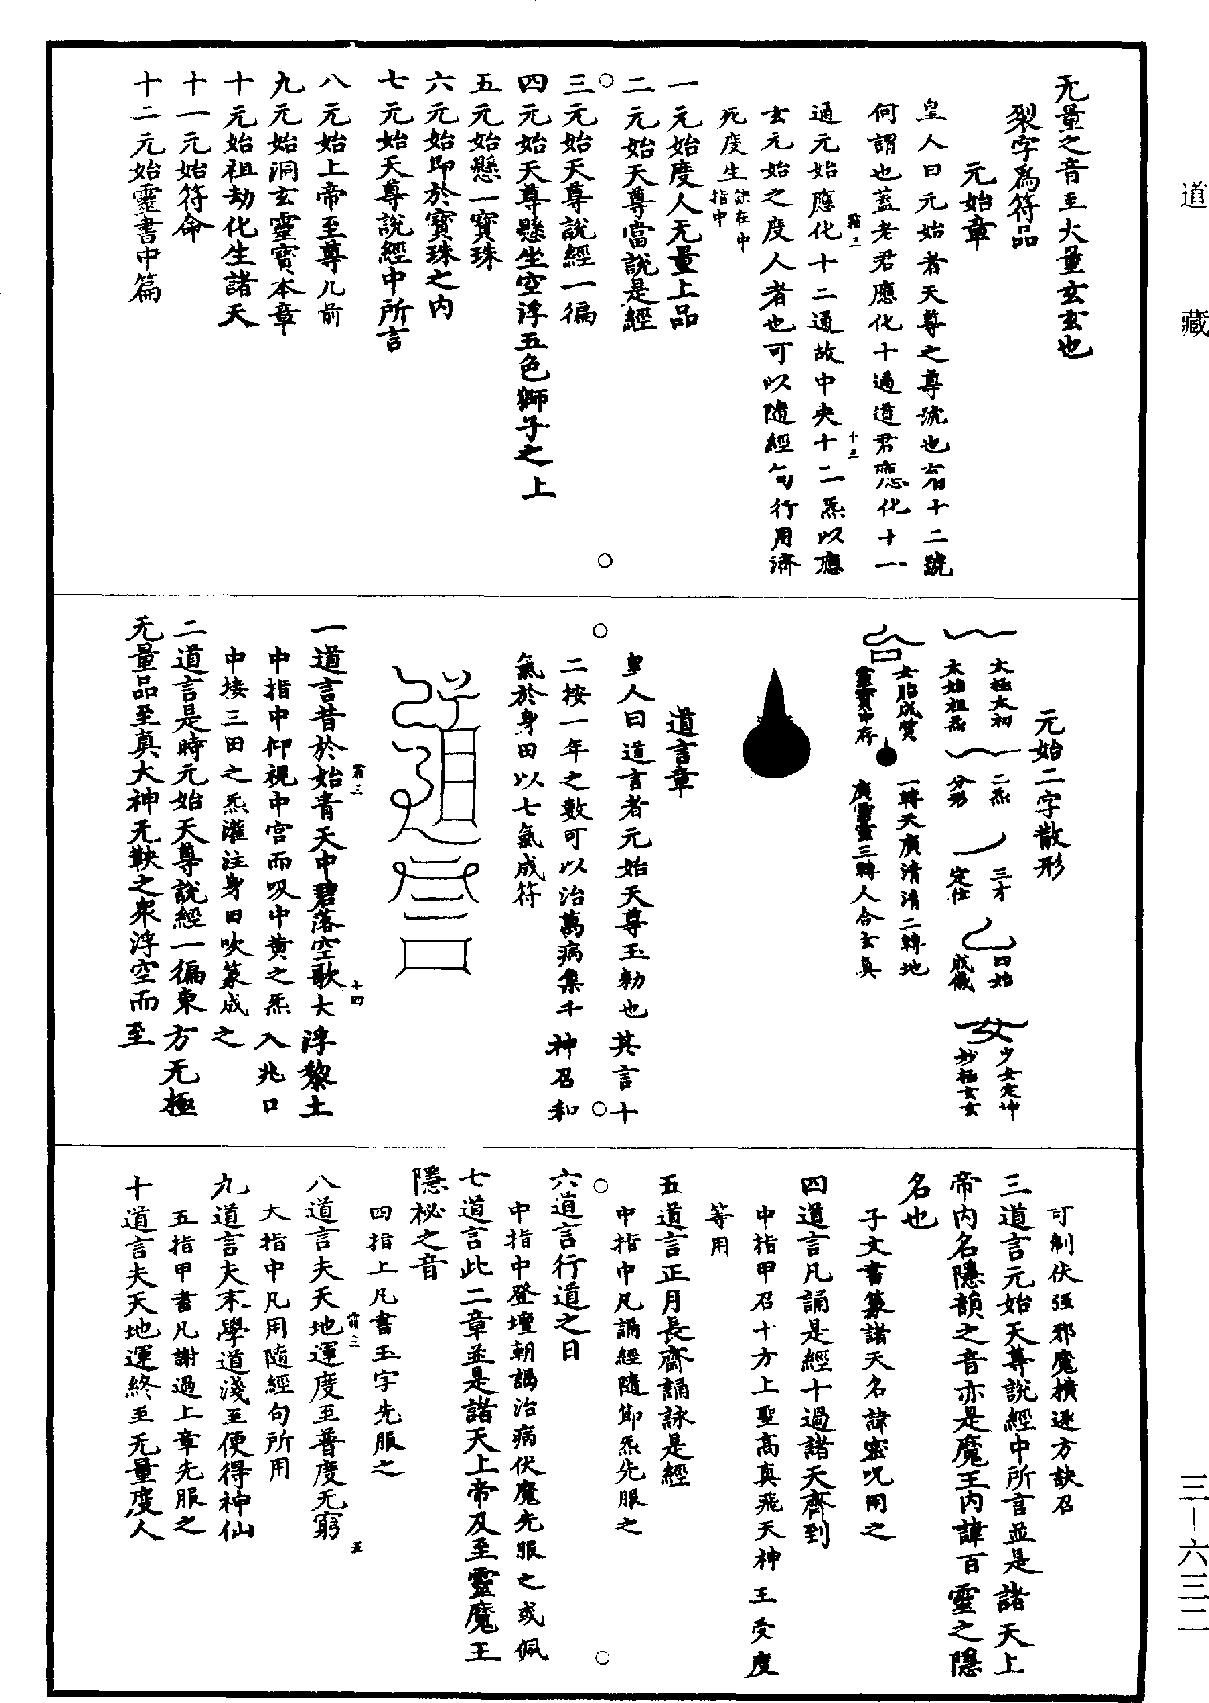 道藏
无量之音至大量玄玄也
裂字為符品
元始章
皇人曰元始者天尊之尊號也有十二號
何謂也蓋老君應化十過道君應化十一
通元始應化十二通故中央十二炁以應
玄元始之度人者也可以隨經句行用濟
死度生訣在中指中
一元始度人无量上品
二元始天尊當說是經
三元始天尊說經一徧
四元始天尊懸坐空浮五色獅子之上
五元始懸一寶珠
六元始即於寶珠之內
七元始天尊說經中所言
八元始上帝至尊几前
九元始洞玄靈寶本章
十元始祖劫化生諸天
十一元始符命
十二元始靈書中篇
元始二字散形
太極太初
太始祖炁
二炁
分形
三才
定位
四始
成儀
女
少女定冲
妙極玄玄
女胎成質
靈寶中存
一轉天廣清清二轉地
廣靈靈三轉人合玄真
道言章
皇人曰道言者元始天尊玉勑也其言十
二按一年之數可以治萬病集千神召和
氣於身田以七氣成符
一道言昔於始青天中碧落空歌大浮黎土
中指中仰視中宮而吸中黃之炁入兆口
中接三田之炁灌注身田吹篆成之
二道言是時元始天尊說經一徧東方无極
无量品至真大神无鞅之衆浮空而至
可制伏強邪魔擴逐方訣召
三道言元始天尊說經中所言並是諸天上
帝內名隱韻之音亦是魔王內諱百靈之隱
名也
子文書篆諸天名諱密呪用之
四道言凡誦是經十過諸天齊到
中指甲召十方上聖高真飛天神王受度
等用
五道言正月長齋誦詠是經
中指中凡誦經隨節炁先服之
六道言行道之日
中指中登壇朝謁治病伏魔先服之或佩
七道言此二章並是諸天上帝及至靈魔王
隱祕之音
四指上凡書玉字先服之
八道言夫天地運度至普度无窮
大指中凡用隨經句所用
九道言夫末學道淺至便得神仙
五指甲書凡謝過上章先服之
十道言夫天地運終至无量度人
三—六三二